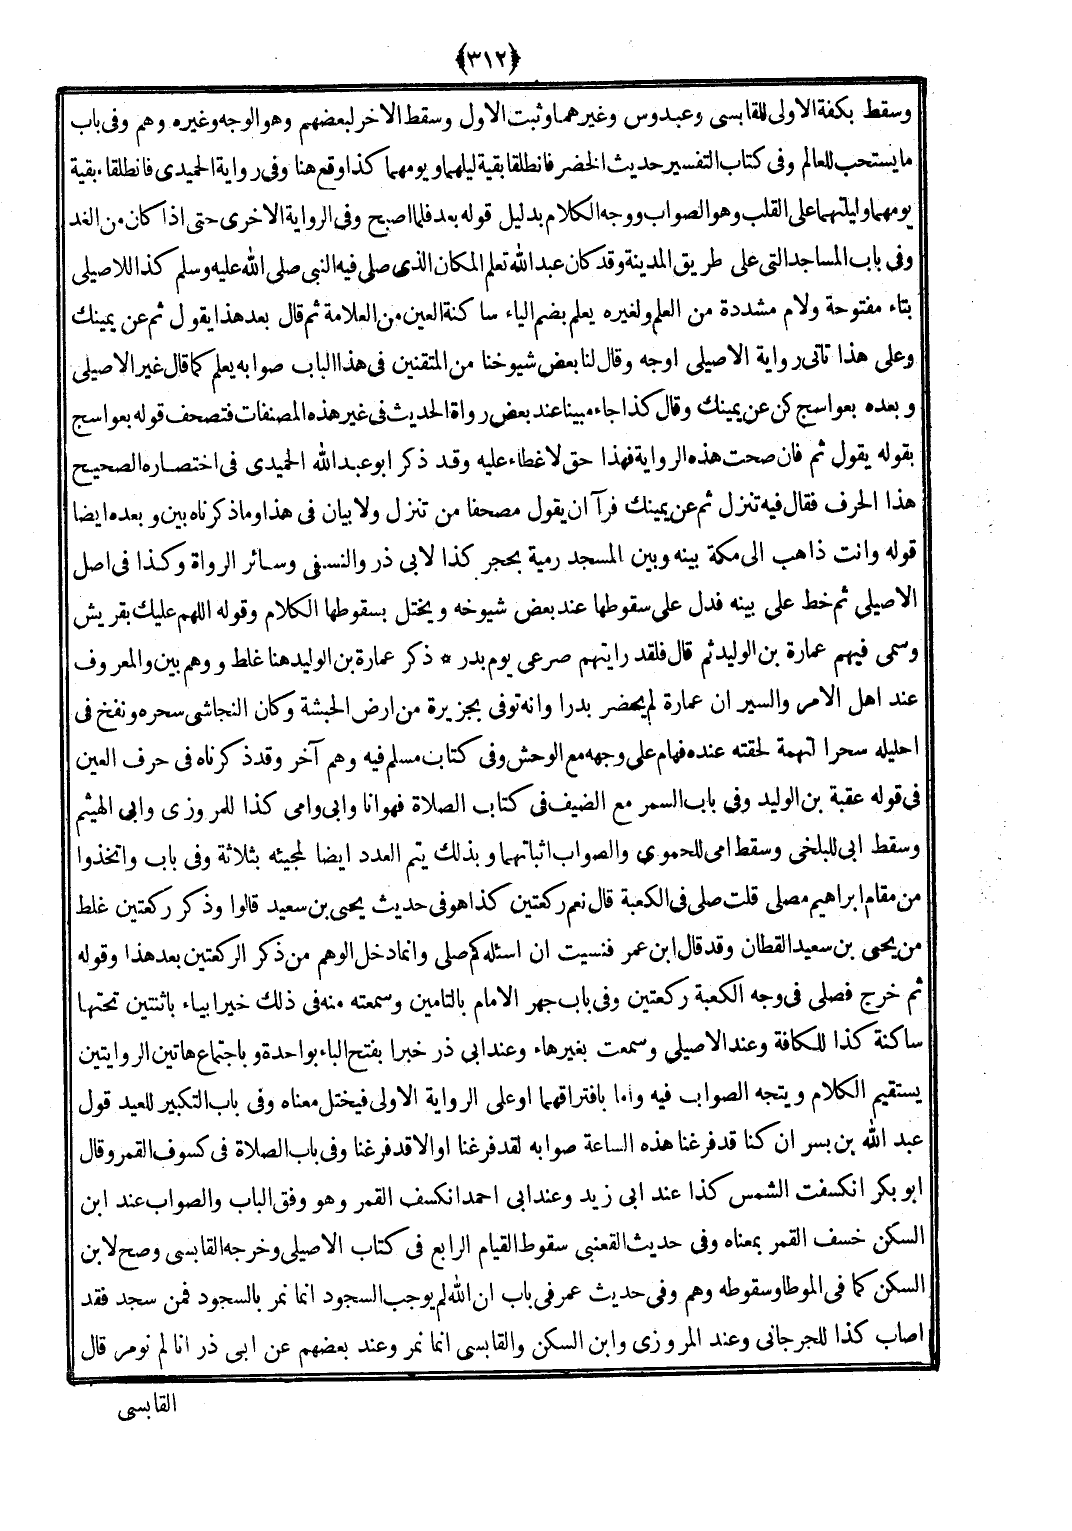 ﴿٣١٢﴾
وسقط بكفة الاولى للقابسى وعبدوس وغيرهما وثبت الاول وسقط الاخر لبعضهم وهو الوجه وغيره وهم وفى باب
ما يستحب للعالم وفى كتاب التفسير حديث الخضر فانطلقا بقية ليلهما ويومهما كذا وقع هنا وفى رواية الحميدى فانطلقا بقية
يومهما وليلتهما على القلب وهو الصواب ووجه الكلام بدليل قوله بعد فلما اصبح وفى الرواية الاخرى حتى اذا كان من الغد
وفى باب المساجد التى على طريق المدينة وقد كان عبد الله تعلم المكان الذى صلى فيه النبى صلى الله عليه وسلم كذا للاصيلى
بتاء مفتوحة ولام مشددة من العلم ولغيره يعلم بضم الياء ساكنة العين من العلامة ثم قال بعد هذا يقول ثم عن يمينك
وعلى هذا تاتى رواية الاصيلى اوجه وقال لنا بعض شيوخنا من المتقنين فى هذا الباب صوابه يعلم كما قال غير الاصيلى
وبعده بعواسج كن عن يمينك وقال كذا جاء مبينا عند بعض رواة الحديث فى غير هذه المصنفات فتصحف قوله بعواسج
بقوله يقول ثم فان صحت هذه الرواية فهذا حق لا غطاء عليه وقد ذكر ابو عبد الله الحميدى فى اختصاره الصحيح
هذا الحرف فقال فيه تنزل ثم عن يمينك فرآ ان يقول مصحفا من تنزل ولا بيان فى هذا وما ذكرناه بين وبعده ايضا
قوله وانت ذاهب الى مكة بينه وبين المسجد رمية بحجر كذا لابى ذر والنسفى وسائر الرواة وكذا فى اصل
الاصيلى ثم خط على بينه فدل على سقوطها عند بعض شيوخه ويختل بسقوطها الكلام وقوله اللهم عليك بقريش
وسمى فيهم عمارة بن الوليد ثم قال فلقد رايتهم صرعى يوم بدر * ذكر عمارة بن الوليد هنا غلط ووهم بين والمعروف
عند اهل الامر والسير ان عمارة لم يحضر بدرا وانه توفى بجزيرة من ارض الحبشة وكان النجاشى سحره ونفخ فى
احليله سحرا لتهمة لحقته عنده فهام على وجهه مع الوحش وفى كتاب مسلم فيه وهم آخر وقد ذكرناه فى حرف العين
فى قوله عقبة بن الوليد وفى باب السمر مع الضيف فى كتاب الصلاة فهو انا وابى وامى كذا للمروزى وابى الهيثم
وسقط ابى للبلخى وسقط امى للحموى والصواب اثباتهما وبذلك يتم العدد ايضا لمجيئه بثلاثة وفى باب واتخذوا
من مقام ابراهيم مصلى قلت صلى فى الكعبة قال نعم ركعتين كذا هو فى حديث يحيى بن سعيد قالوا وذكر ركعتين غلط
من يحيى بن سعيد القطان وقد قال ابن عمر فنسيت ان اسئله كم صلى وانما دخل الوهم من ذكر الركعتين بعد هذا وقوله
ثم خرج فصلى فى وجه الكعبة ركعتين وفى باب جهر الامام بالتامين وسمعته منه فى ذلك خيرا بياء باثنتين تحتها
ساكنة كذا للكافة وعند الاصيلى وسمعت بغير هاء وعند ابى ذر خبرا بفتح الباء بواحدة وباجتماع هاتين الروايتين
يستقيم الكلام ويتجه الصواب فيه واما بافتراقهما او على الرواية الاولى فيختل معناه وفى باب التكبير للعيد قول
عبد الله بن بسر ان كنا قد فرغنا هذه الساعة صوابه لقد فرغنا او الا قد فرغنا وفى باب الصلاة فى كسوف القمر وقال
ابو بكر انكسفت الشمس كذا عند ابى زيد وعند ابى احمد انكسف القمر وهو وفق الباب والصواب عند ابن
السكن خسف القمر بمعناه وفى حديث القعنبى سقوط القيام الرابع فى كتاب الاصيلى وخرجه القابسى وصح لابن
السكن كما فى الموطا وسقوطه وهم وفى حديث عمر فى باب ان الله لم يوجب السجود انما نمر بالسجود فمن سجد فقد
اصاب كذا للجرجانى وعند المروزى وابن السكن والقابسى انما نمر وعند بعضهم عن ابى ذر انا لم نومر قال
القابسى